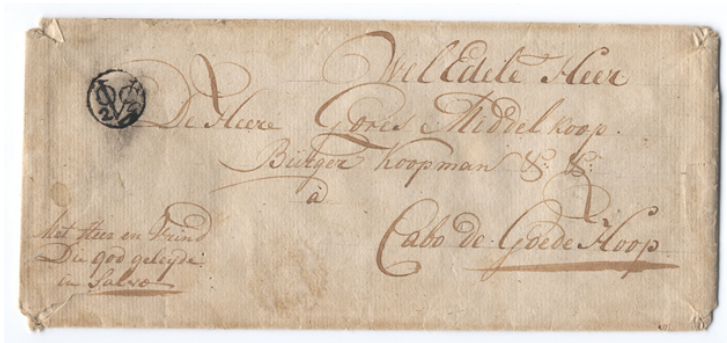 Wel Edele Heer
De Heere Goris Middelkoop.
Burger Koopman & &:
a
Cabo de Goede Hoop
Met Heer en Vrind
Die god geleyde
in Salvo
VOC